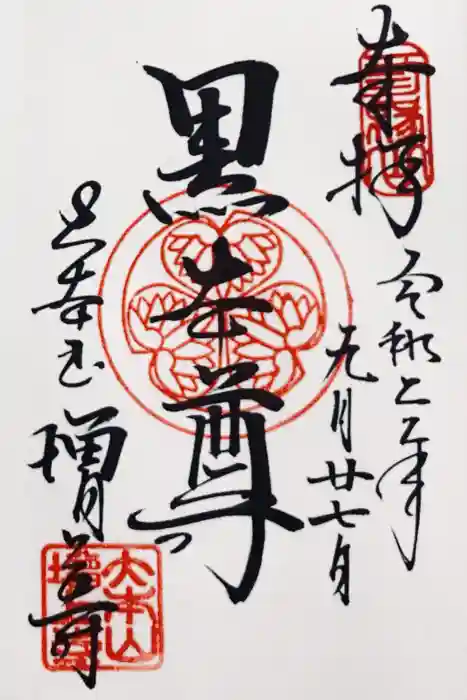 奉拝
令和二年
九月廿七日
黒本尊
大本山
増上寺
大本山
増上寺